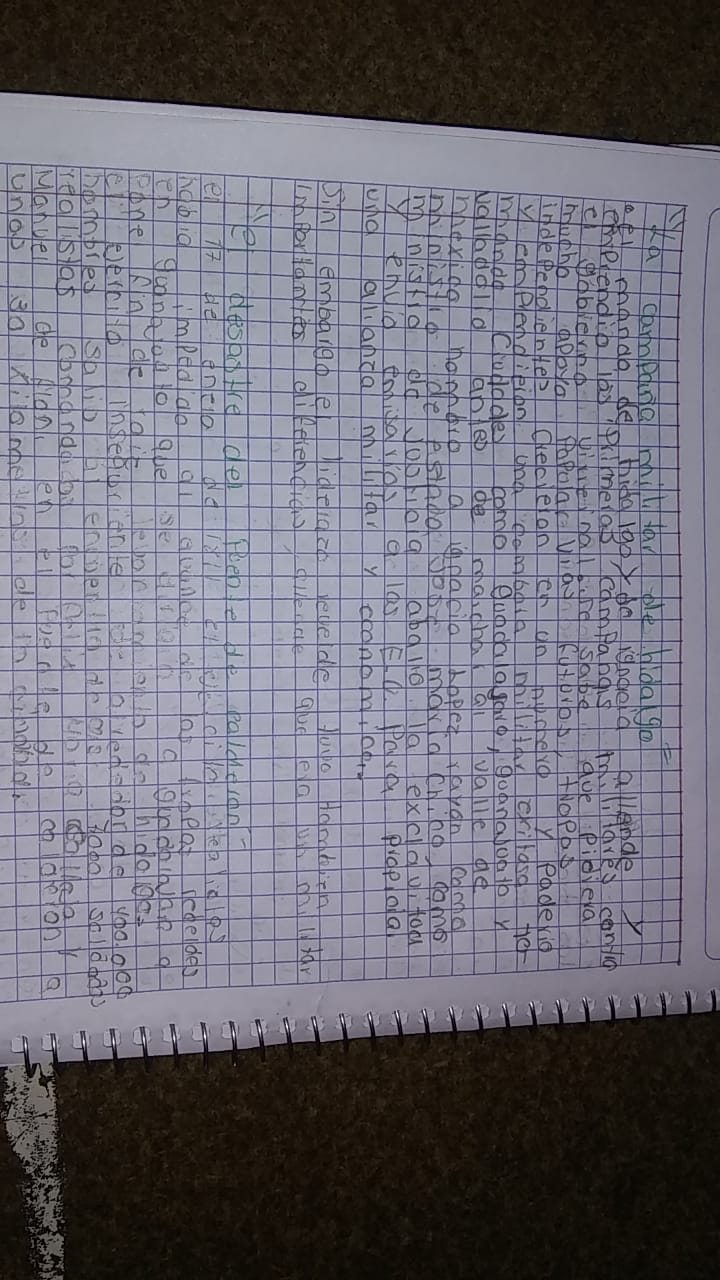 "La campaña militar de hidalgo"
• el mando de hidalgo y de ignacio allende y
emprendio las primeras campañas militares contra
el gobierno virreinal se sabe que tubiera
mucho apoyo popular y las futuras tropas
independientes crecieron en un numero y poderio
y emprendieron una campaña militar exitosa to-
mando ciudades como Guadalajara, guanajuato y
Valladolid antes de marchar al valle de
mexico nombro a ignacio lopez rayon como
ministro de estado y jose maria chico como
ministro de Justicia abolio la exclavitud
y envio emisarios a los E.U. Para propiciar
una alianza militar y economica.
Sin embargo el liderazo revelde tuvo tambien
importantes diferencias, allende que era un militar
"el desastre del Puente de calderon"
el 17 de enero de 1811 el ejercito realista
habia impedido al avance de las tropas rebeldes
en guanajuato que se dirigian a Guadalajara
con el fin de levantamiento de hidalgo.
el ejercito insegurjante de alrededor de 100,000
hombres salio al encuentro de los 7000 soldados
realistas comandados por Felix maria calleja y
Manuel de flon, en el Puente de calderon a
unos 30 kilometros de la ciudad.